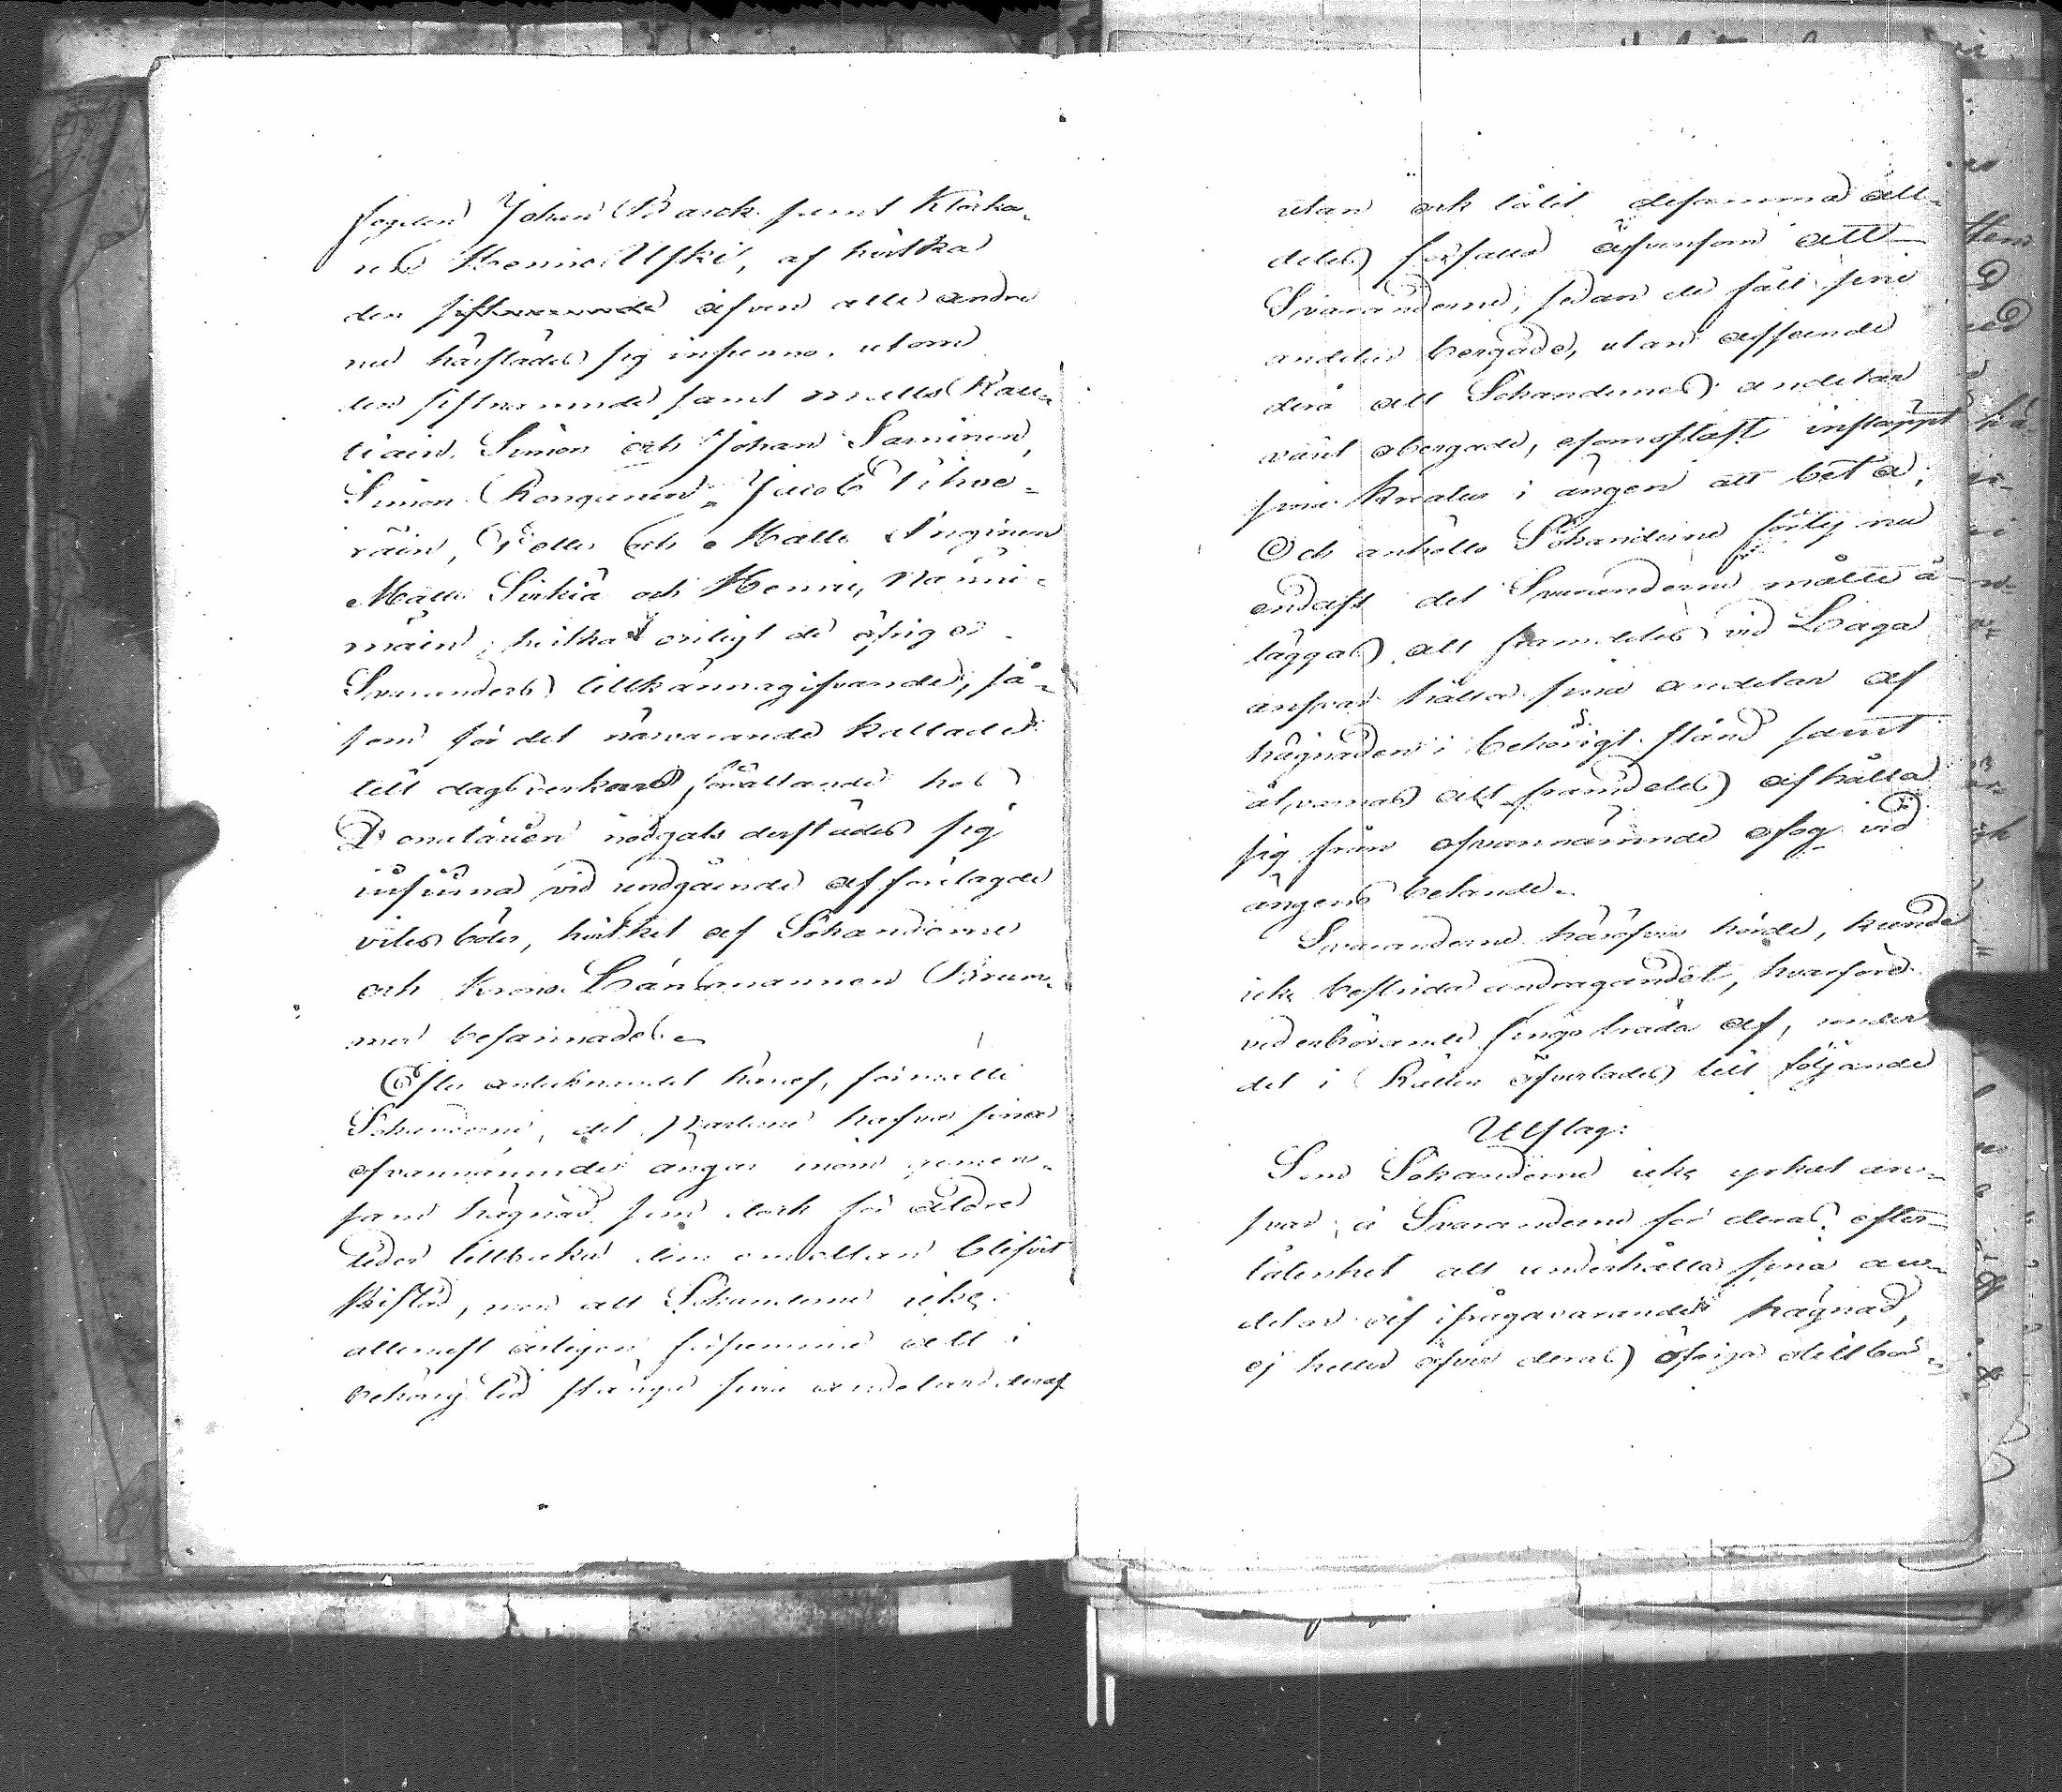 fogden Johan Barck samt Klocka-
ren Henric Uski, af hvilka
den sistnämnde äfven alla andra
nu härstädes sig infunno, utom
den sistnämnde samt Matts Kau-
tiain, Simon och Johan Saminen,
Simon Ronganen, Jacob Tihve-
räin, och Matts Inginen
Matts Sirkiä och Henric Nämi-
mäin, hvilka enligt de öfriga
Svarandes tillkännagifvande, så-
som för det närvarande kallade
till dagsverkens förrättande hos
Donatarien nödgats derstädes sig
infinna vid undgående af förelagde
vites böter, hvilket af Sökanderne
och Krono Länsmannen Brum-
mer besannades.
Efter antecknandet häraf, förmälte
Sökanderne, det Parterne hafva sina
ofvannämnde ängar inom gemen-
sam hägnad som dock för äldre
tider tillbaka dem emellan blifvit
skiftad, men att Sökanderne icke
allenast årligen försummat att i
behörig tid stänga sina andelar deraf
utan ock låtit desamma all-
deles förfalla äfvensom att
Svaranderne, sedan de fått sina
andelar bergade, utan afseende
derå att Sökandernes andelar
varit obergade, esomoftast insläppt
sina kreatur i ängen att beta;
Och anhöllo Sökanderne förty nu
endast det Svaranderne måtte å-
läggas att framdeles vid Laga
ansvar hålla sina andelar af
hägnaden i behörigt stånd samt
åtvarnas att framdeles afhålla
sig från ofvannämnde ofog vid
ängens betande.
Svaranderne häröfver hörde, kunde
icke bestrida andragandet, hvarföre
vederbörande fingo träda af, under
det i Rätten öfverlades till följande
Utslag:
Som Sökanderne icke yrkat an-
svar å Svaranderne för deras efter-
låtenhet att underhålla sina an-
delar af ifrågavarande hägnad,
ej heller öfver deras öfriga tillbör-